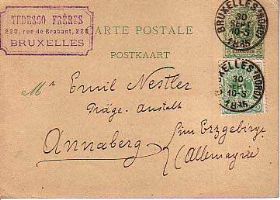 TEDESCO FRÈRES
BRUXELLES
CARTE POSTALE
POSTKAART
BRUXELLES (NORD)
30
10-S
BRUXELLES (NORD)
30
10-S
Mr Emil Nestler
Präge-Anstalt
Annaberg im Erzgebirge
(Allemagne)